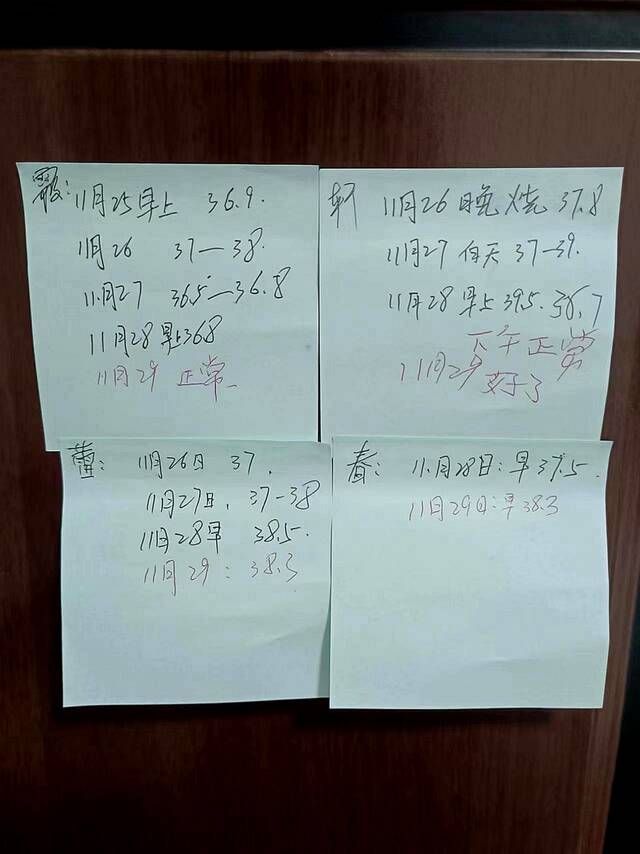 11月25早上 36.9.
11月26 37—38.
11月27 36.5—36.8
11月28早上368
11月29 正常
轩 11月26 晚烧 37.8
11月27 白天 37—39.
11月28 早上 39.5. 36.7
下午正常
11月29 好了
蕾: 11月26日 37.
11月27日. 37-38
11月28早 38.5.
11月29: 38.3
春: 11月28日:早37.5.
11月29日:早38.3